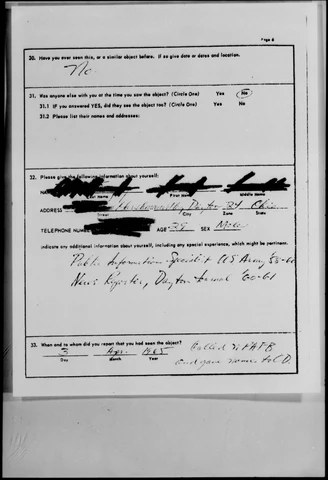 Page 6
30. Have you ever seen this, or a similar object before. If so give date or dates and location.
No
31. Was anyone else with you at the time you saw the object? (Circle One) Yes No
31.1 If you answered YES, did they see the object too? (Circle One) Yes No
31.2 Please list their names and addresses:
32. Please give the following information about yourself:
NAME
Last Name First Name Middle Name
ADDRESS Dayton 24 Ohio
Street City Zone State
TELEPHONE NUMBER AGE 28 SEX Male
Indicate any additional information about yourself, including any special experience, which might be pertinent.
Public Information Specialist US Army
News Reporter, Dayton Journal '60-61
33. When and to whom did you report that you had seen the object? Called WPAFB
3 Apr. 1965 and gave name to O.D.
Day Month Year